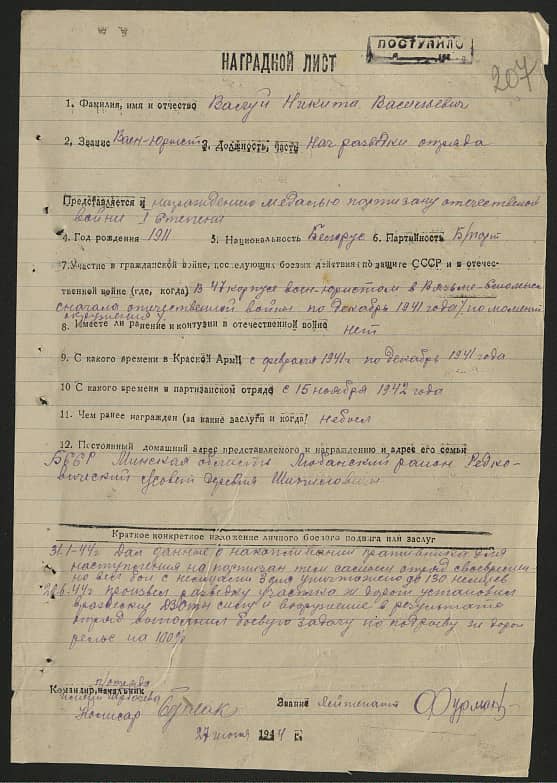 ПОСТУПИЛО
НАГРАДНОЙ ЛИСТ
207
1. Фамилия, имя и отчество Валуй Никита Васильевич
2. Звание Воен-юрист 3. Должность, часть Нач разведки отряда
Представляется к награждению медалью партизану отечественной
войны I степени
4. Год рождения 1911 5. Национальность Белорус 6. Партийность Б/парт
7. Участие в гражданской войне, последующих боевых действиях по защите СССР и в отече-
ственной войне (где, когда) В 47 корпусе воен-юристом в
сначала отечественной войны по декабрь 1941 года / по момент
окружения /
8. Имеете ли ранение и контузии в отечественной войне нет
9. С какого времени в Красной Армии с февраля 1941 г по декабрь 1941 года
10 С какого времени в партизанском отряде с 15 ноября 1942 года
11. Чем ранее награжден (за какие заслуги и когда) не был
12. Постоянный домашний адрес представляемого к награждению и адрес его семьи
БССР Минская область Любанский район Редко-
вический с/совет деревня
Краткое конкретное изложение личного боевого подвига или заслуг
31.1-44г. Дал данные о накоплении противника для
наступления на партизан тем самым отряд своевремен-
но вел бой с немцами 3 дня уничтожено до 130 немцев
20.6-44г произвел разведку участка ж дороги установил
вражеских ДЗОТы силу и вооружение в результате
отряд выполнил боевую задачу по подрыву ж дорог
рельс на 100%
Командир, начальник п/отряда
Комисар
Звание лейтенант Фурман
27 июля 1944 г.